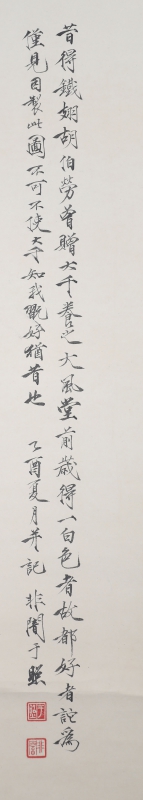 昔得鐵翅胡伯勞曾贈大千養之大風堂前歲得一白色者故都好者詫為
僅見因製此圖不可不使大千知我氍好猶昔也　乙酉夏月并記　非闇于照